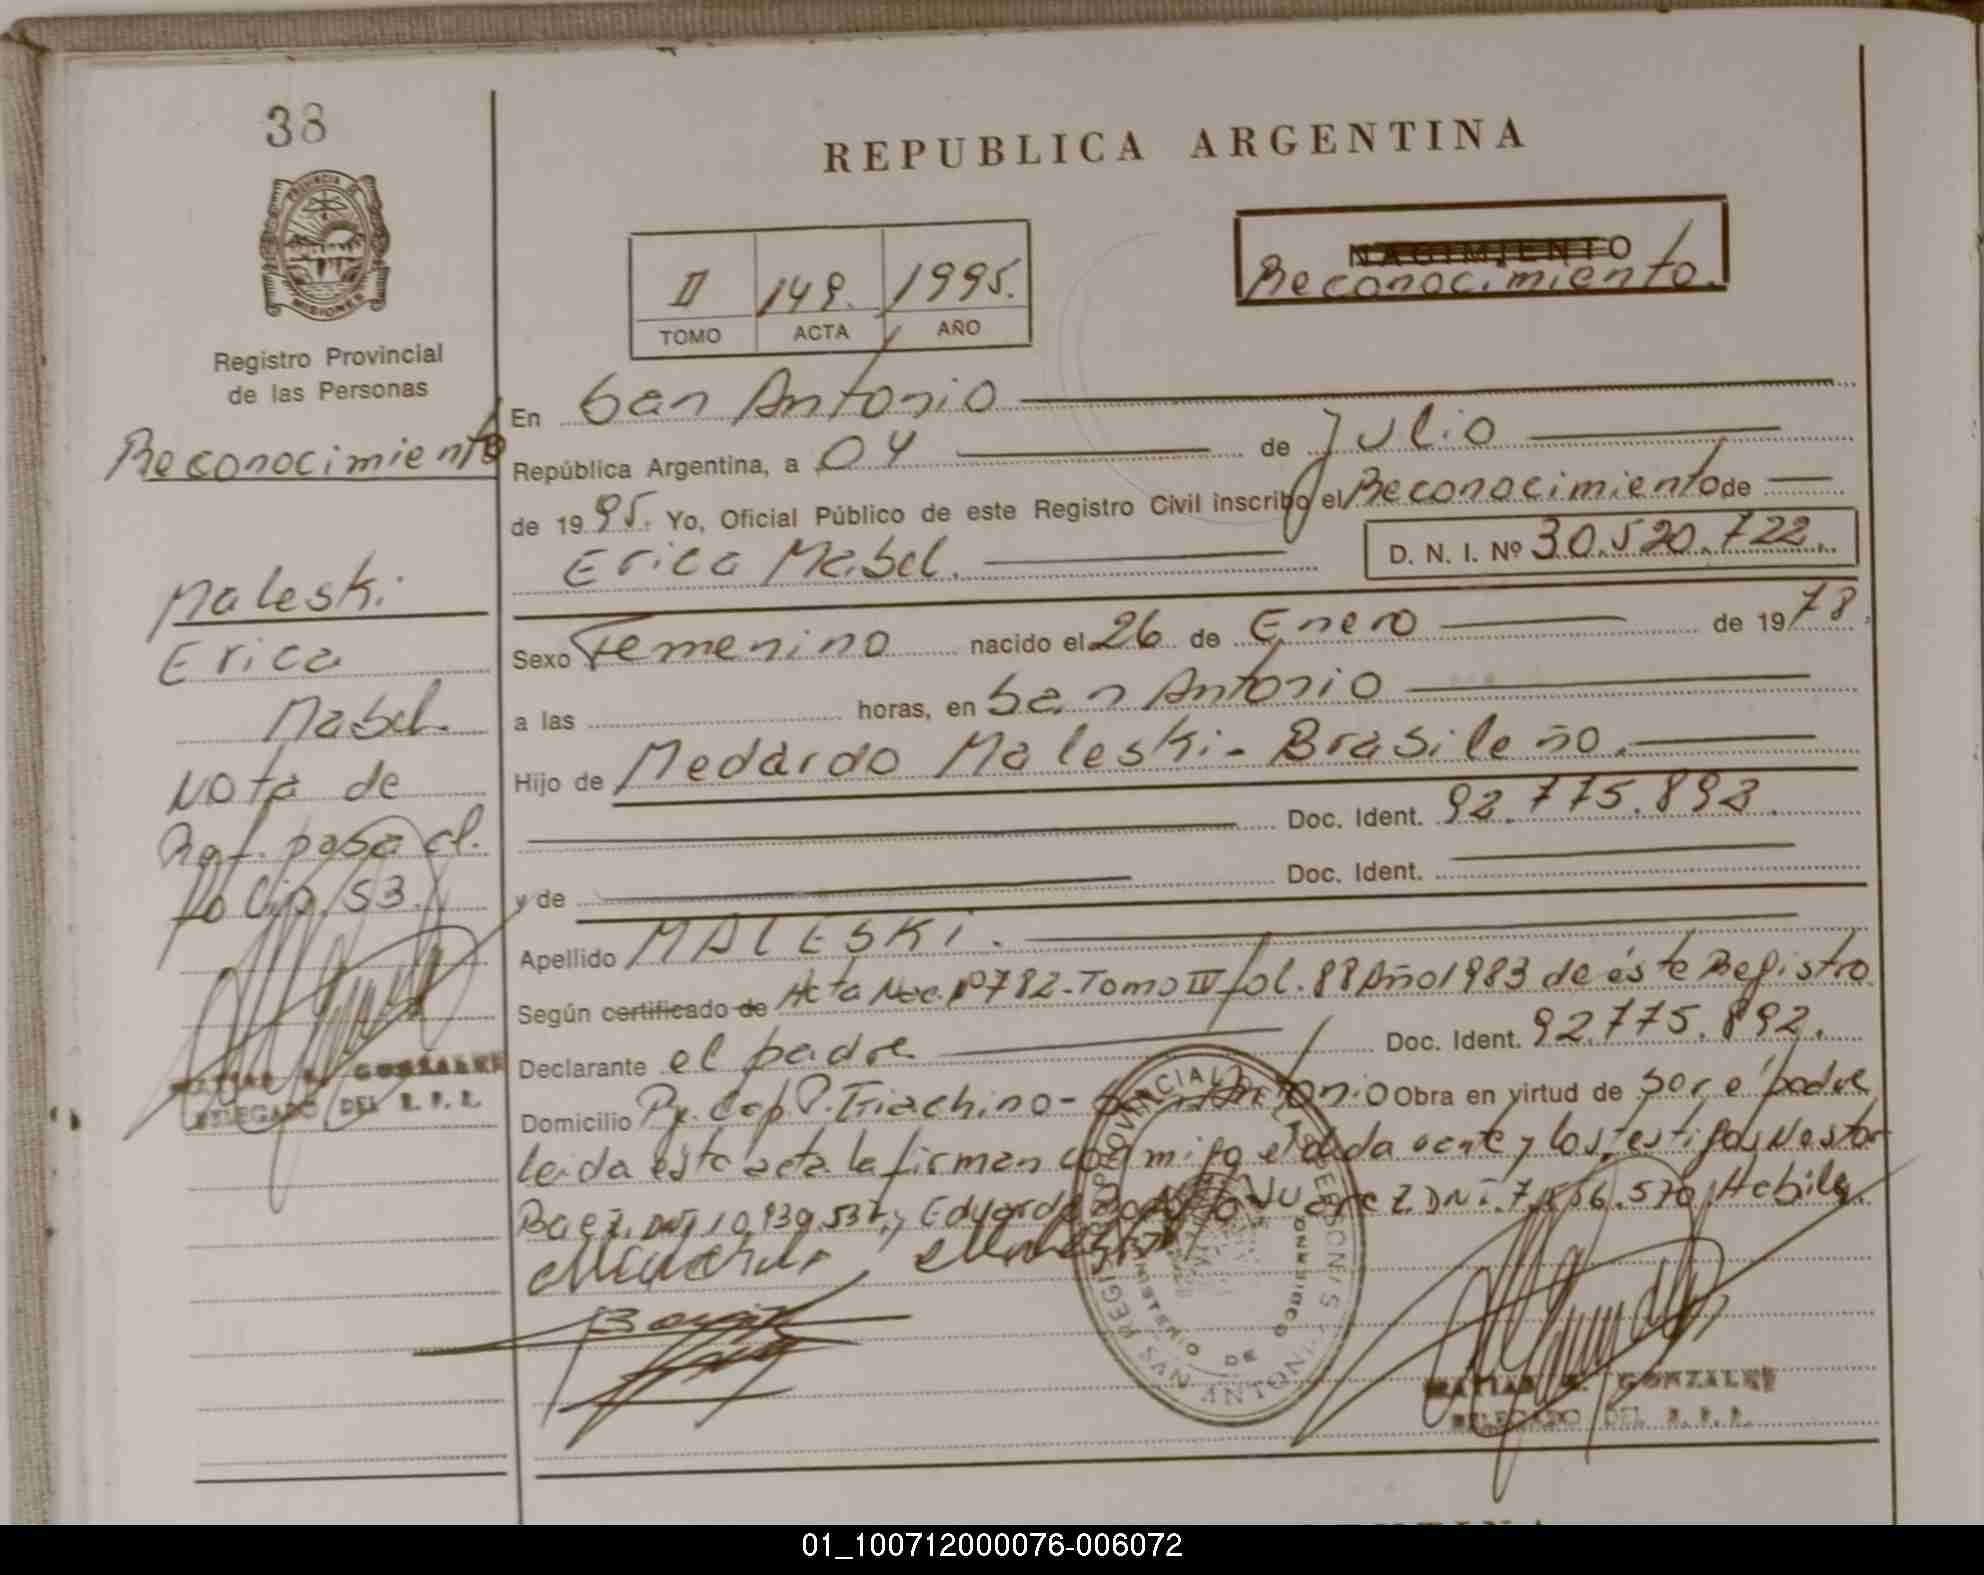 38
REPUBLICA ARGENTINA
PROVINCIA DE
MISIONES
Registro Provincial
de las Personas
II 149. 1995.
TOMO ACTA AÑO
NACIMIENTO
Reconocimiento.
Reconocimiento
Maleski
Erica
Mabel.
Nota de
Ref. pasa al
folio 53.
GONZALEZ
DELEGADO DEL R. P. P.
En San Antonio
República Argentina, a 04 de Julio
de 1995. Yo, Oficial Público de este Registro Civil inscribo el Reconocimiento de
Erica Mabel. D. N. I. Nº 30.520.722.
Sexo Femenino nacido el 26 de Enero de 1978.
a las horas, en San Antonio
Hijo de Medardo Maleski - Brasileño.
Doc. Ident. 92.775.892.
y de Doc. Ident.
Apellido MALESKI.
Según certificado de Acta Nac. Nº 782 - Tomo IV fol. 88 Año 1983 de éste Registro
Declarante el padre Doc. Ident. 92.775.892.
Domicilio Pje. Cap. Antonio Obra en virtud de ser el padre
leida esta acta la firman conmigo el y los testigos Nestor
Baez, DNI Eduardo DNI. Habiles.
REGISTRO PROVINCIAL DE LAS PERSONAS
MINISTERIO DE GOBIERNO
SAN ANTONIO
MATIAS GONZALEZ
DELEGADO DEL R. P. P.
01_100712000076-006072